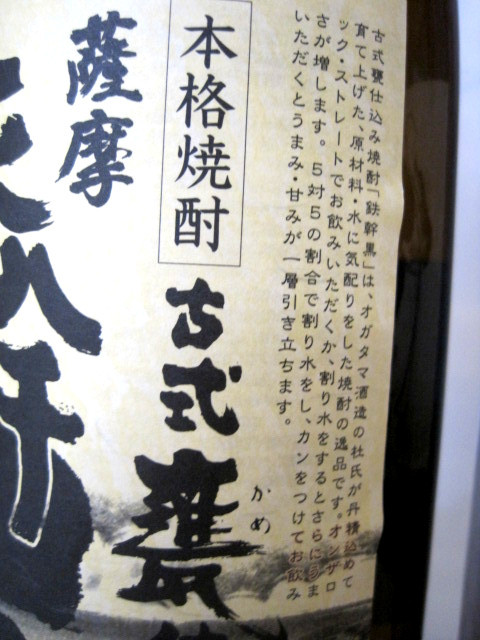 古式甕仕込み焼酎「鉄幹黒」は、オガタマ酒造の杜氏が丹精込めて
育て上げた、原材料・水に気配りをした焼酎の逸品です。オンザロ
ック・ストレートでお飲みいただくか、割り水をするとさらにうま
さが増します。5対5の割合で割り水をし、カンをつけてお飲み
いただくとうまみ・甘みが一層引き立ちます。
本格焼酎
古式甕
かめ
薩摩
幹